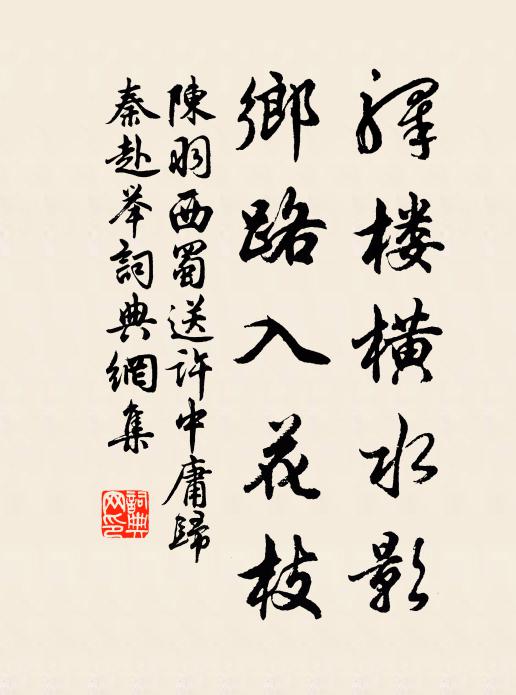 驛楼橫水影
鄉路入花枝
陳羽西蜀送許中庸歸
秦赴举詞典網集
詞典网印